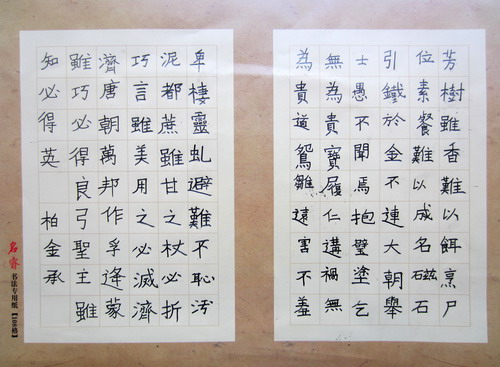 芳樹雖香難以餌烹尸
位素餐難以成名磁石
引鐵於金不連大朝舉
士愚不聞焉抱璧塗乞
無為貴寶履仁遘禍無
為貴道鴛雛遠害不羞
卑棲靈虬避難不恥污
泥都蔗雖甘之杖必折
巧言雖美用之必滅濟
濟唐朝萬邦作孚逢蒙
雖巧必得良弓聖王雖
知必得英 柏金承
名睿 书法专用纸【108格】